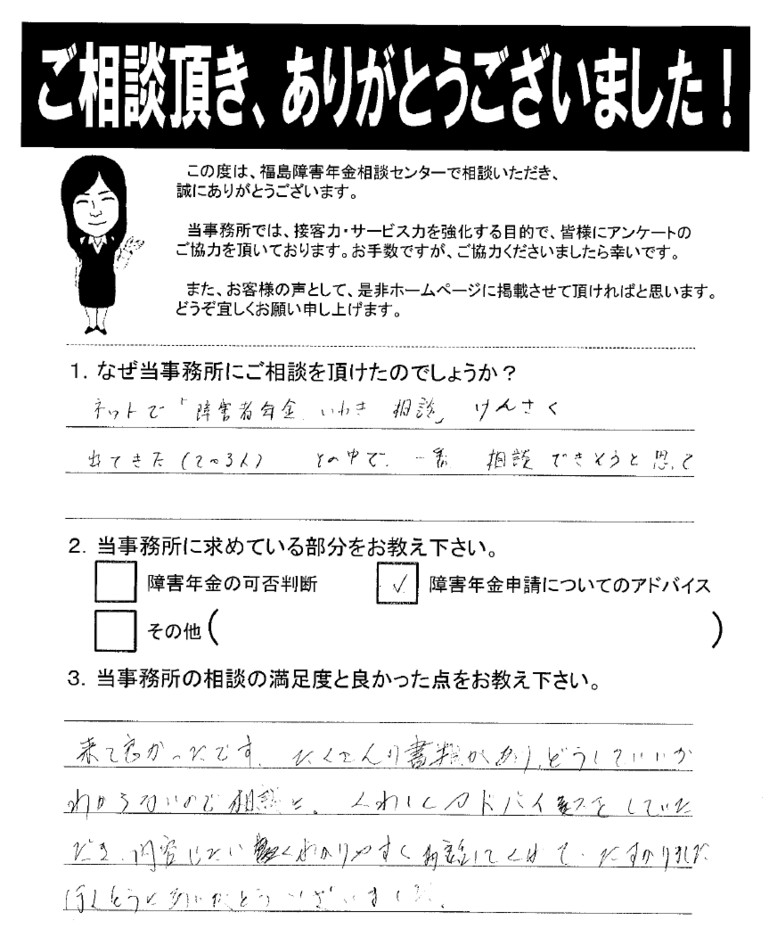 ご相談頂き、ありがとうございました！
この度は、福島障害年金相談センターで相談いただき、
誠にありがとうございます。
当事務所では、接客力・サービス力を強化する目的で、皆様にアンケートの
ご協力を頂いております。お手数ですが、ご協力くださいましたら幸いです。
また、お客様の声として、是非ホームページに掲載させて頂ければと思います。
どうぞ宜しくお願い申し上げます。
1. なぜ当事務所にご相談を頂けたのでしょうか？
ネットで「障害者年金 いわき 相談」 けんさく
出てきた（2～3人） その中で、一番 相談できそうと思って
2. 当事務所に求めている部分をお教え下さい。
障害年金の可否判断 ✓ 障害年金申請についてのアドバイス
その他（ ）
3. 当事務所の相談の満足度と良かった点をお教え下さい。
来て良かったです。たくさんの書類があり、どうしていいか
わからないので相談と、くわしくアドバイスをしていた
だき、内容 わかりやすく してくれて、たすかりました
ほんとうにありがとうございました。